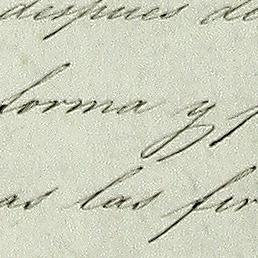 despues de
forma y
as las fir